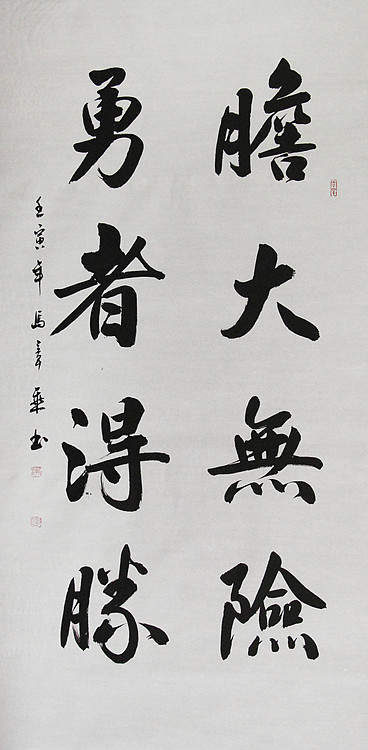 膽大無險
勇者得勝
壬寅年馬彦華书